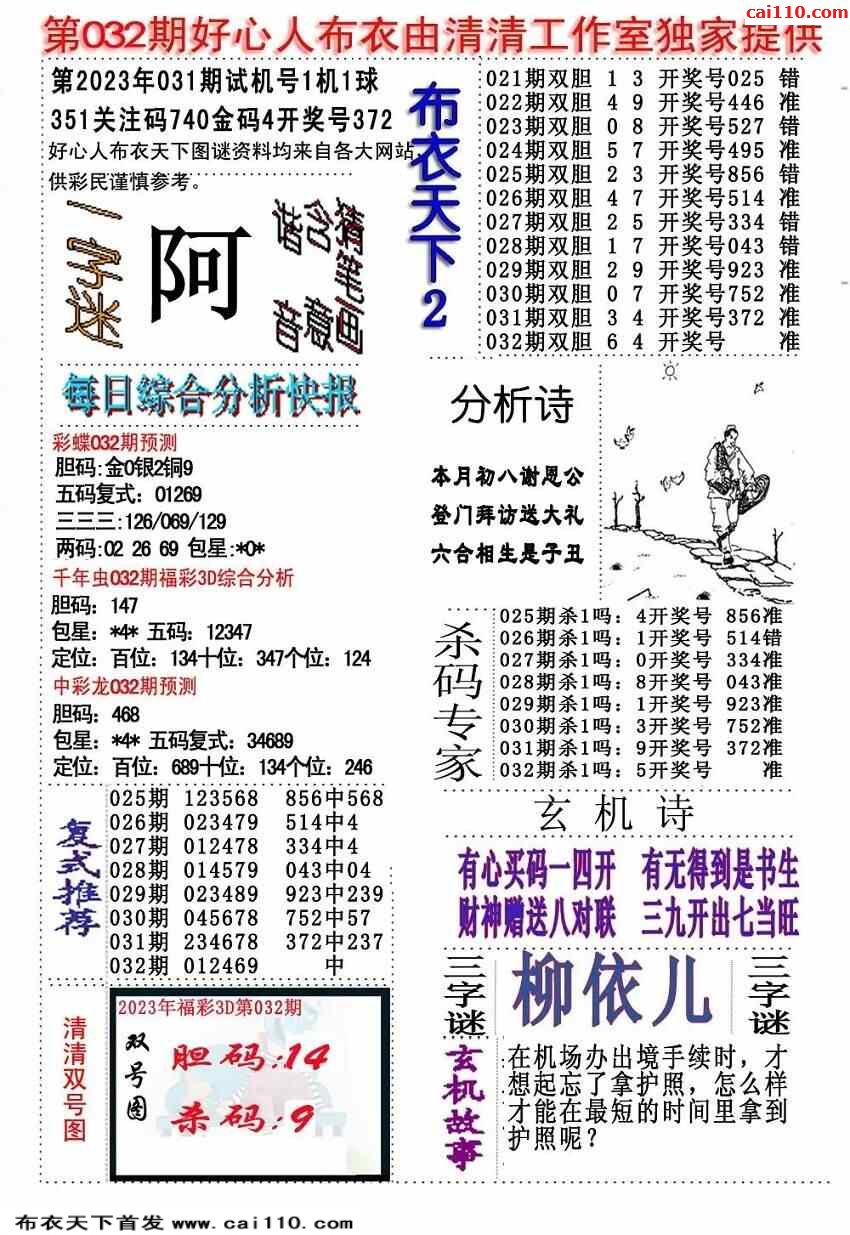 cai110.com
第032期好心人布衣由清清工作室独家提供
第2023年031期试机号1机1球
351关注码740金码4开奖号372
好心人布衣天下图谜资料均来自各大网站,
供彩民谨慎参考。
一字迷
阿
猜笔画
含意
谐音
布衣天下2
021期双胆 1 3 开奖号025 错
022期双胆 4 9 开奖号446 准
023期双胆 0 8 开奖号527 错
024期双胆 5 7 开奖号495 准
025期双胆 2 3 开奖号856 错
026期双胆 4 7 开奖号514 准
027期双胆 2 5 开奖号334 错
028期双胆 1 7 开奖号043 错
029期双胆 2 9 开奖号923 准
030期双胆 0 7 开奖号752 准
031期双胆 3 4 开奖号372 准
032期双胆 6 4 开奖号 准
每日综合分析快报
彩蝶032期预测
胆码:金0银2铜9
五码复式：01269
三三三:126/069/129
两码:02 26 69 包星:*0*
千年虫032期福彩3D综合分析
胆码：147
包星：*4* 五码：12347
定位：百位：134十位：347个位：124
中彩龙032期预测
胆码：468
包星：*4* 五码复式：34689
定位：百位：689十位：134个位：246
分析诗
本月初八谢恩公
登门拜访送大礼
六合相生是子丑
杀码专家
025期杀1吗：4开奖号 856准
026期杀1吗：1开奖号 514错
027期杀1吗：0开奖号 334准
028期杀1吗：8开奖号 043准
029期杀1吗：1开奖号 923准
030期杀1吗：3开奖号 752准
031期杀1吗：9开奖号 372准
032期杀1吗：5开奖号 准
复式推荐
025期 123568 856中568
026期 023479 514中4
027期 012478 334中4
028期 014579 043中04
029期 023489 923中239
030期 045678 752中57
031期 234678 372中237
032期 012469 中
玄机诗
有心买码一四开 有无得到是书生
财神赠送八对联 三九开出七当旺
三字谜
柳依儿
三字谜
清清双号图
2023年福彩3D第032期
双号图
胆码:14
杀码:9
玄机故事
在机场办出境手续时，才
想起忘了拿护照，怎么样
才能在最短的时间里拿到
护照呢？
布衣天下首发 www.cai110.com